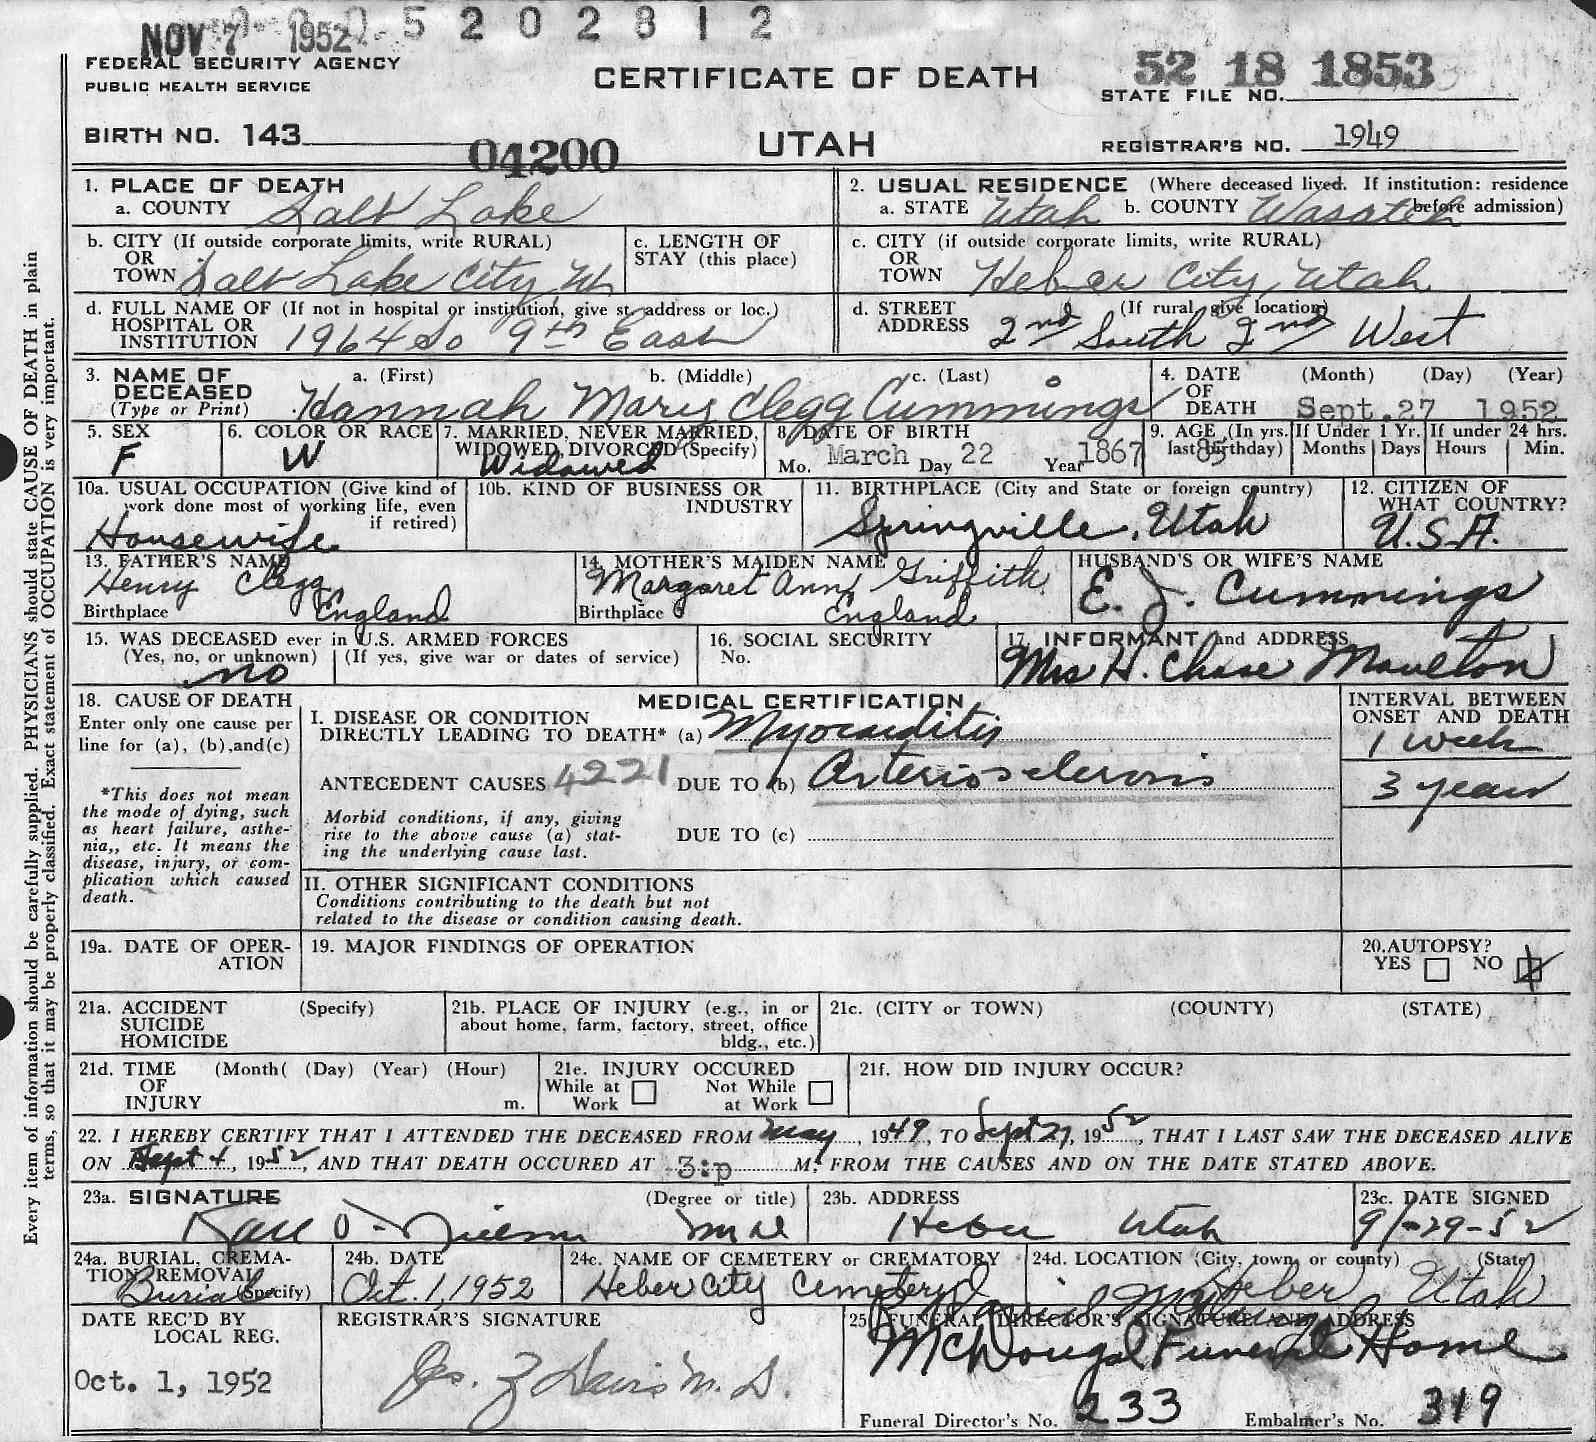 NOV 7 1952 5 2 0 2 8 1 2
FEDERAL SECURITY AGENCY
PUBLIC HEALTH SERVICE
CERTIFICATE OF DEATH
52 18 1853
STATE FILE NO.
BIRTH NO. 143
04200
UTAH
REGISTRAR'S NO. 1949
1. PLACE OF DEATH
a. COUNTY Salt Lake
2. USUAL RESIDENCE (Where deceased lived. If institution: residence before admission)
a. STATE Utah b. COUNTY Wasatch
b. CITY (If outside corporate limits, write RURAL)
OR
TOWN Salt Lake City, Ut
c. LENGTH OF
STAY (this place)
c. CITY (if outside corporate limits, write RURAL)
OR
TOWN Heber City, Utah
d. FULL NAME OF (If not in hospital or institution, give st. address or loc.)
HOSPITAL OR
INSTITUTION 1964 So 9th East
d. STREET (If rural give location)
ADDRESS 2nd South 2nd West
3. NAME OF
DECEASED
(Type or Print)
a. (First) b. (Middle) c. (Last)
Hannah Mary Clegg Cummings
4. DATE (Month) (Day) (Year)
OF
DEATH Sept. 27 1952
5. SEX
F
6. COLOR OR RACE
W
7. MARRIED, NEVER MARRIED,
WIDOWED, DIVORCED (Specify)
Widowed
8. DATE OF BIRTH
Mo. March Day 22 Year 1867
9. AGE (In yrs. last birthday) 85
If Under 1 Yr. Months Days
If under 24 hrs. Hours Min.
10a. USUAL OCCUPATION (Give kind of
work done most of working life, even
if retired)
Housewife
10b. KIND OF BUSINESS OR
INDUSTRY
11. BIRTHPLACE (City and State or foreign country)
Springville, Utah
12. CITIZEN OF
WHAT COUNTRY?
U.S.A.
13. FATHER'S NAME
Henry Clegg
Birthplace England
14. MOTHER'S MAIDEN NAME
Margaret Ann Griffith
Birthplace England
HUSBAND'S OR WIFE'S NAME
E. J. Cummings
15. WAS DECEASED ever in U.S. ARMED FORCES
(Yes, no, or unknown) (If yes, give war or dates of service)
no
16. SOCIAL SECURITY
No.
17. INFORMANT and ADDRESS
Mrs H. Chase Moulton
18. CAUSE OF DEATH
Enter only one cause per
line for (a), (b), and (c)
*This does not mean
the mode of dying, such
as heart failure, asthe-
nia,, etc. It means the
disease, injury, or com-
plication which caused
death.
MEDICAL CERTIFICATION
I. DISEASE OR CONDITION
DIRECTLY LEADING TO DEATH* (a) Myocarditis
ANTECEDENT CAUSES 4221 DUE TO (b) Arteriosclerosis
Morbid conditions, if any, giving
rise to the above cause (a) stat-
ing the underlying cause last.
DUE TO (c)
INTERVAL BETWEEN
ONSET AND DEATH
1 week
3 years
II. OTHER SIGNIFICANT CONDITIONS
Conditions contributing to the death but not
related to the disease or condition causing death.
19a. DATE OF OPER-
ATION
19. MAJOR FINDINGS OF OPERATION
20. AUTOPSY?
YES NO
21a. ACCIDENT (Specify)
SUICIDE
HOMICIDE
21b. PLACE OF INJURY (e.g., in or
about home, farm, factory, street, office
bldg., etc.)
21c. (CITY or TOWN) (COUNTY) (STATE)
21d. TIME (Month( (Day) (Year) (Hour)
OF
INJURY m.
21e. INJURY OCCURED
While at Work Not While at Work
21f. HOW DID INJURY OCCUR?
22. I HEREBY CERTIFY THAT I ATTENDED THE DECEASED FROM May, 1949, TO Sept 27, 1952, THAT I LAST SAW THE DECEASED ALIVE
ON Sept 4, 1952, AND THAT DEATH OCCURED AT 3:p M. FROM THE CAUSES AND ON THE DATE STATED ABOVE.
23a. SIGNATURE (Degree or title)
Karl O. Nielson MD
23b. ADDRESS
Heber Utah
23c. DATE SIGNED
9/-29-52
24a. BURIAL, CREMA-
TION REMOVAL
(Specify) Burial
24b. DATE
Oct. 1, 1952
24c. NAME OF CEMETERY OR CREMATORY
Heber City Cemetery
24d. LOCATION (City, town, or county) (State)
Heber Utah
DATE REC'D BY
LOCAL REG.
Oct. 1, 1952
REGISTRAR'S SIGNATURE
Jos. Z Davis M.D.
25. FUNERAL DIRECTOR'S SIGNATURE AND ADDRESS
McDougal Funeral Home
Funeral Director's No. 233 Embalmer's No. 319
Every item of information should be carefully supplied. PHYSICIANS should state CAUSE OF DEATH in plain
terms, so that it may be properly classified. Exact statement of OCCUPATION is very important.